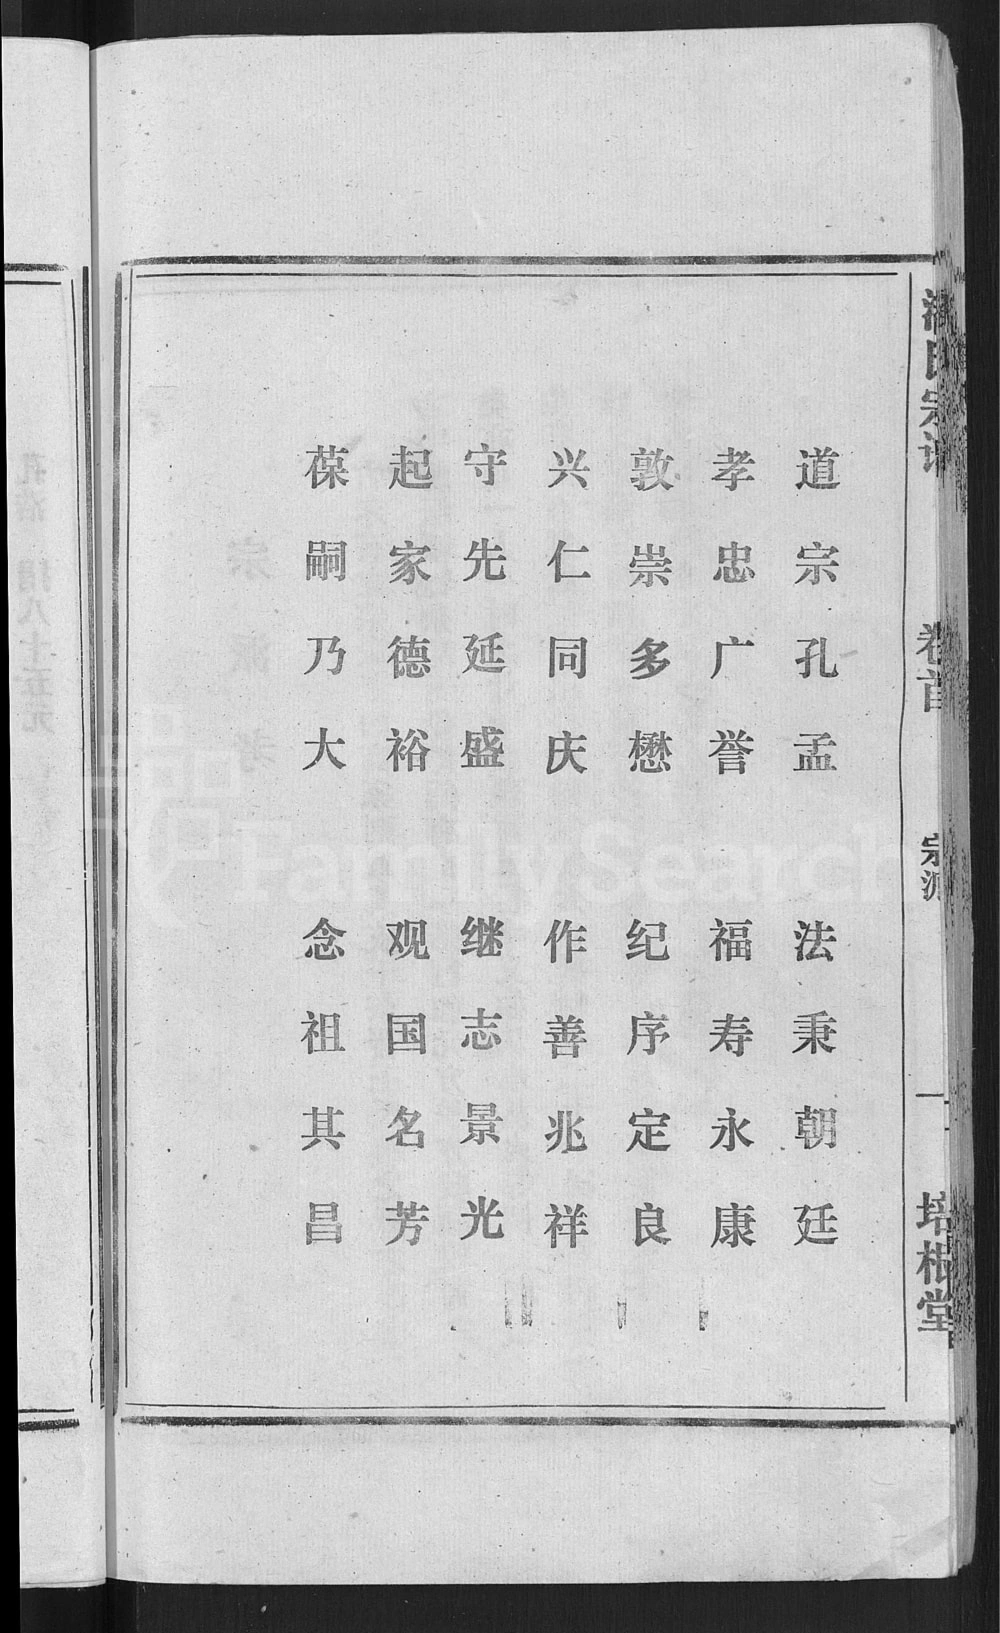 道宗孔孟 法秉朝廷
孝忠广誉 福寿永康
敦崇多懋 纪序定良
兴仁同庆 作善兆祥
守先延盛 继志景光
起家德裕 观国名芳
葆嗣乃大 念祖其昌
氏宗谱
卷首
宗派
一
培根堂
FamilySearch